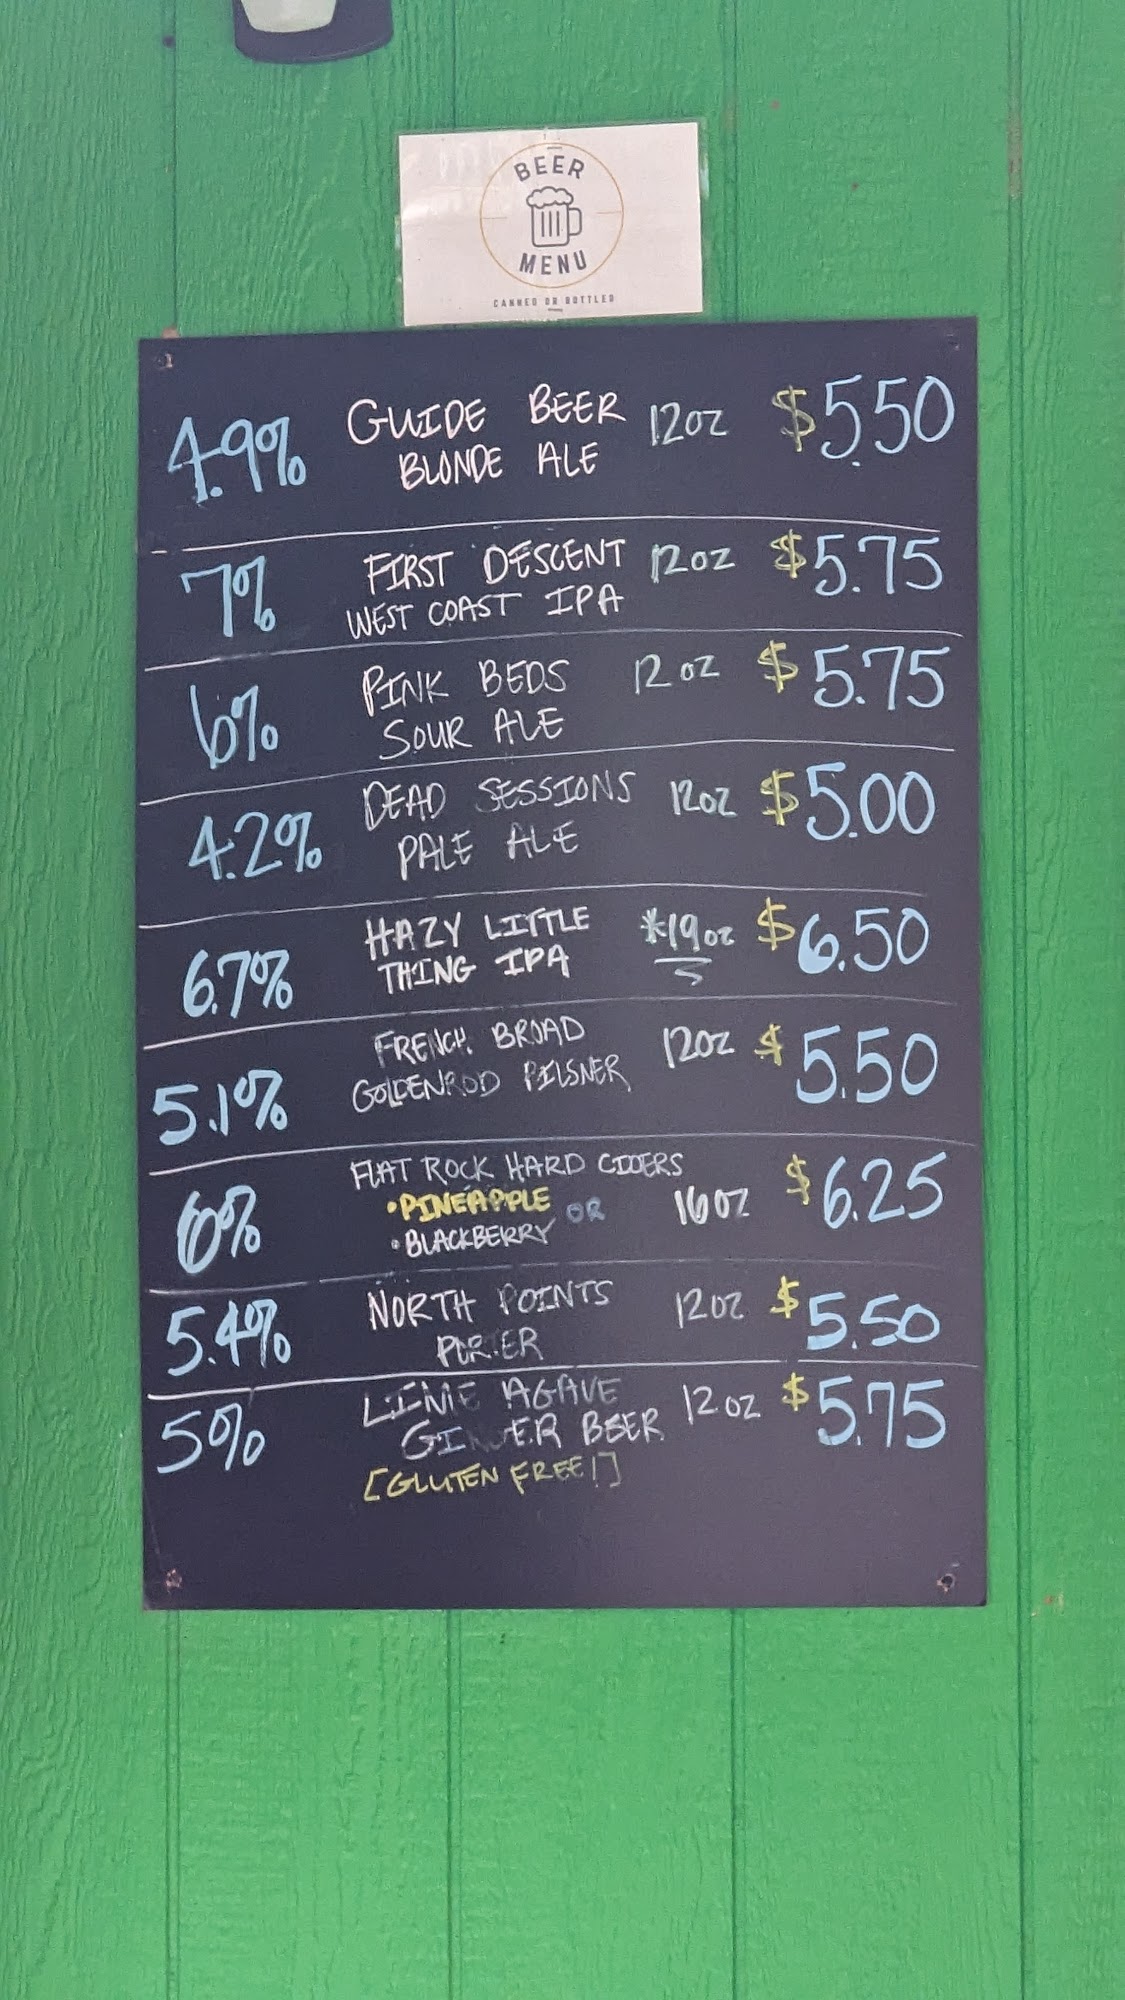 BEER
MENU
CANNED OR BOTTLED
4.9% GUIDE BEER 12oz $5.50
BLONDE ALE
7% FIRST DESCENT 12oz $5.75
WEST COAST IPA
6% PINK BEDS 12oz $5.75
SOUR ALE
4.2% DEAD SESSIONS 12oz $5.00
PALE ALE
6.7% HAZY LITTLE *19oz $6.50
THING IPA
5.1% FRENCH BROAD 12oz $5.50
GOLDENROD PILSNER
6% FLAT ROCK HARD CIDERS 16oz $6.25
•PINEAPPLE OR
•BLACKBERRY
5.4% NORTH POINTS 12oz $5.50
PORTER
5% LIME AGAVE 12oz $5.75
GINGER BEER
[GLUTEN FREE!]